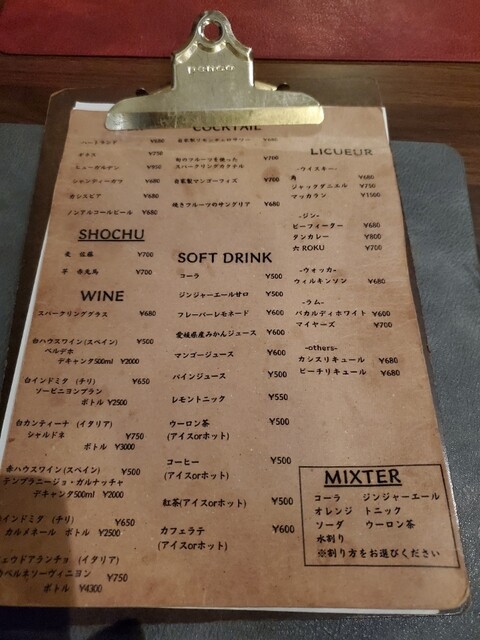 penco
COCKTAIL
ハートランド ¥680
ギネス ¥750
ヒューガルデン ¥900
シャンディーガフ ¥680
カシスビア ¥680
ノンアルコールビール ¥680
SHOCHU
麦 佐藤 ¥700
芋 赤兎馬 ¥700
WINE
スパークリンググラス ¥680
白ハウスワイン(スペイン) ¥500
ベルデホ
デキャンタ500ml ¥2000
白インドミタ (チリ) ¥650
ソービニヨンブラン
ボトル ¥2500
白カンティーナ (イタリア)
シャルドネ ¥750
ボトル ¥3000
赤ハウスワイン(スペイン) ¥500
テンプラニージョ・ガルナッチャ
デキャンタ500ml ¥2000
インドミタ (チリ) ¥650
カルメネール ボトル ¥2500
(イタリア)
カベルネソーヴィニヨン ¥750
ボトル ¥4300
¥680
旬のフルーツを使った ¥700
スパークリングカクテル
自家製マンゴーフィズ ¥700
焼きフルーツのサングリア ¥680
SOFT DRINK
コーラ ¥500
ジンジャーエール甘口 ¥500
フレーバーレモネード ¥600
愛媛県産みかんジュース ¥600
マンゴージュース ¥600
パインジュース ¥500
レモントニック ¥550
ウーロン茶 ¥500
(アイスorホット)
コーヒー ¥500
(アイスorホット)
紅茶(アイスorホット) ¥500
カフェラテ ¥600
(アイスorホット)
LIQUEUR
-ウイスキー-
角 ¥680
ジャックダニエル ¥750
マッカラン ¥1500
-ジン-
ビーフィーター ¥680
タンカレー ¥800
六 ROKU ¥700
-ウォッカ-
ウィルキンソン ¥680
-ラム-
バカルディホワイト ¥600
マイヤーズ ¥700
-others-
カシスリキュール ¥680
ピーチリキュール ¥680
MIXTER
コーラ ジンジャーエール
オレンジ トニック
ソーダ ウーロン茶
水割り
※割り方をお選びください